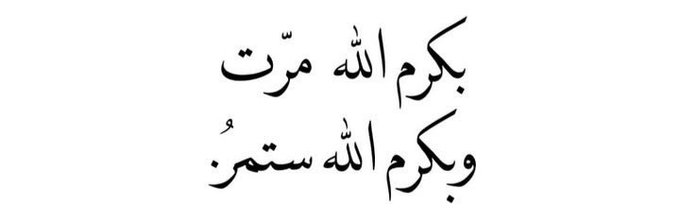 بكرم الله مرّت
وبكرم الله ستمرُ.